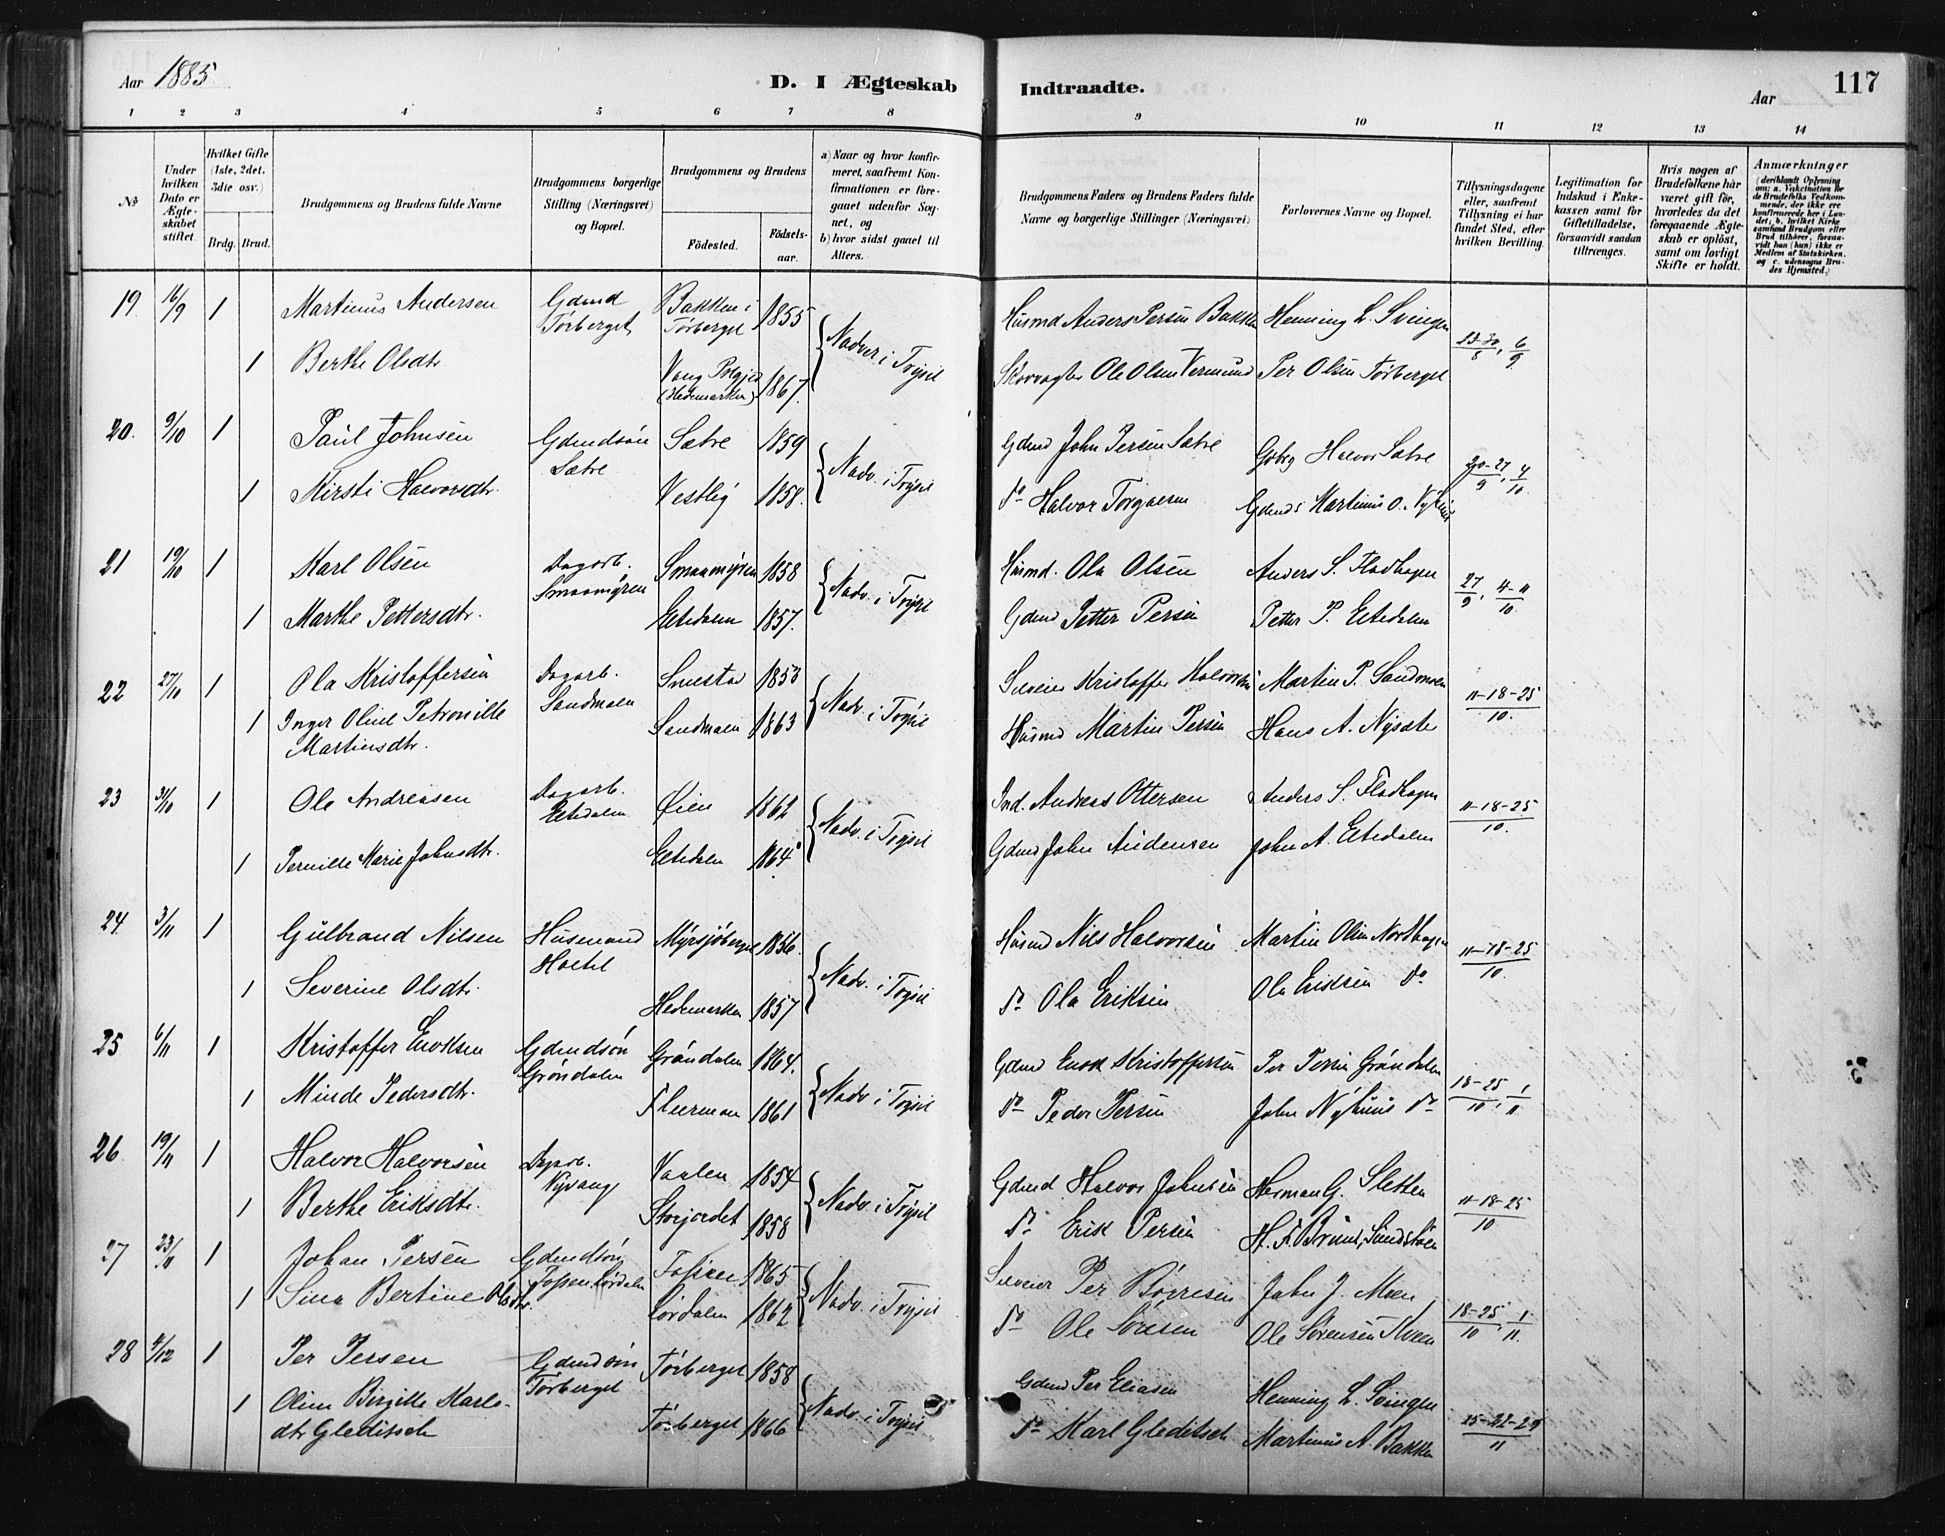 Aar 1885.
D. I Ægteskab Indtraadte.
Aar
117
1 2 3 4 5 6 7 8 9 10 11 12 13 14
No
Under hvilken Dato er Ægteskabet stiftet.
Hvilket Gifte (1ste, 2det, 3die osv.)
Brdg. Brud.
Brudgommens og Brudens fulde Navne
Brudgommens borgerlige Stilling (Næringsvei) og Bopæl.
Brudgommens og Brudens
Fødested.
Fødselsaar.
a) Naar og hvor konfirmeret, saafremt Konfirmationen er foregaaet udenfor Sognet, og
b) hvor sidst gaaet til Alters.
Brudgommens Faders og Brudens Faders fulde Navne og borgerlige Stillinger (Næringsvei)
Forlovernes Navne og Bopæl.
Tillysningsdagene eller, saafremt Tillysning ei har fundet Sted, efter hvilken Bevilling.
Legitimation for Indskud i Enkekassen samt for Giftetilladelse, forsaavidt saadan tiltrænges.
Hvis nogen af Brudefolkene har været gift før, hvorledes da det foregaaende Ægteskab er opløst, samt om lovligt Skifte er holdt.
Anmærkninger (deriblandt Oplysning om: a. Vakcination for de Brudefolks Vedkommende, der ikke ere konfirmerede her i Landet; b. hvilket Kirkesamfund Brudgom eller Brud tilhører, forsaavidt han (hun) ikke er Medlem af Statskirken, og c. udensogns Brudes Hjemsted.)
19. 16/9 1 Martinus Andersen Gdmd Tørberget Bakken i Tørberget 1855 Nadver i Trysil Husmd Anders Persen Bakken Henning L. Svingen 23-30/8, 6/9
1 Berthe Olsdtr Vang (Hedemarken) 1867. Ole Olsen Vermund Per Olsen Tørberget
20. 9/10 1 Paul Johnsen Gdmdsøn Sætre Sætre 1859 Nadv. i Trysil Gdmd John Persen Sætre Halvor Sætre 20-27/9, 4/10
1 Kirsti Halvorsdtr. Vestlig 1858. do Halvor Torgalsen Martinus O. Nyhus
21 19/10 1 Karl Olsen Dagarb. Smaamyren Smaamyren 1858 Nadv. i Trysil Husmd. Ola Olsen Anders S. Flodhagen 27/9, 4-11/10
1 Marthe Pettersdtr. Eltedalen 1857. Gdmd Petter Persen Petter P. Eltedalen
22 27/10 1 Ola Kristoffersen Dagarb. Sandmoen Smestad 1853 Nadv. i Trysil Selveier Kristoffer Halvorsen Martin P. Sandmoen 11-18-25/10.
1 Inger Oline Petronille Martinsdtr. Sandmoen 1863 Husmd Martin Persen Hans A. Nysæte
23 31/10 1 Ole Andreasen Dagarb. Eltedalen Øien 1862 Nadv. i Trysil Ind. Andreas Ottersen Anders S. Flodhagen 11-18-25/10.
1 Pernille Marie Johnsdtr. Eltedalen 1864. Gdmd John Andersen John A. Eltedalen
24. 3/11 1 Gulbrand Nilsen Husmand Holtet Myrsjøberget 1856. Nadv. i Trysil Husmd Nils Halvorsen Martin Olsen Nordhagen 11-18-25/10.
1 Severine Olsdtr. Hedemarken 1857 do Ola Eriksen Ola Eriksen do
25 6/11 1 Kristoffer Enoksen Gdmdsøn Grøndalen Grøndalen 1864. Nadv. i Trysil Gdmd Enok Kristoffersen Per Persen Grøndalen 18-25/10, 1/11
1 Minde Pedersdtr. Flermoen 1861 do Peder Persen John Nyhuus do
26. 19/11 1 Halvor Halvorsen Dagarb. Nyvang Vaalen 1854 Nadv. i Trysil Gdmd Halvor Johnsen Herman G. Sletten 11-18-25/10
1 Berthe Eriksdtr. Storjordet 1858 do Erik Persen
27 23/11 1 Johan Persen Gdmdsøn 1865 Nadv. i Trysil Selveier Per Børresen John J. Moen 18-25/10, 1/11.
1 Sina Bertine Olsdtr. Lørdalen 1862 do Ole Ole Sørensen Kven
28 4/12 1 Per Persen Gdmdsøn Tørberget Tørberget 1858 Nadv. i Trysil Gdmd Per Eliasen Henning L. Svingen 15-22-29/11
1 Oline Birgitte Karlsdtr Gleditsch Tørberget 1866 do Karl Gleditsch Martinus A. Bakken